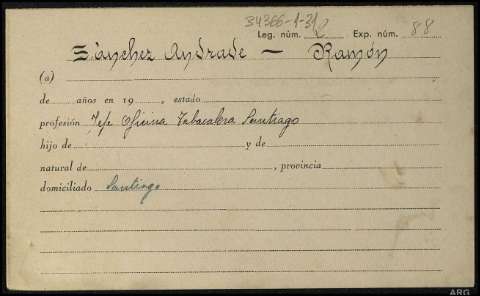 B4366-1-31
Leg. núm. 2 Exp. núm. 88
Sánchez Andrade — Ramón
(a)
de años en 19 , estado
profesión Jefe Oficina Tabacalera Santiago
hijo de y de
natural de , provincia
domiciliado Santiago
ARG